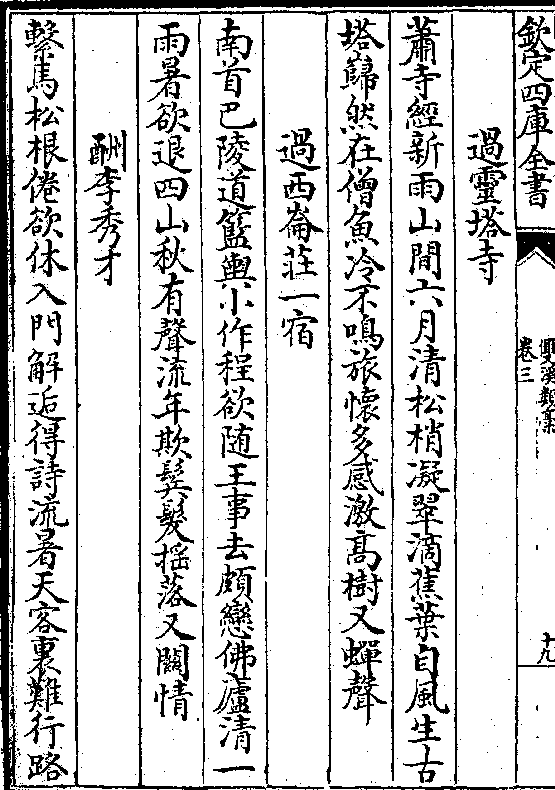 欽定四庫全書
雙溪類稾
卷三
十九
過靈塔寺
蕭寺經新雨山間六月清松梢凝翠滴蕉葉自風生古
塔巋然在僧魚冷不鳴旅懷多感激髙樹又蟬聲
過西崙莊一宿
南首巴陵道籃輿小作程欲随王事去頗戀佛廬清一
雨暑欲退四山秋有聲流年欺鬂髮揺落又闗情
酬李秀才
繫馬松根倦欲休入門解逅得詩流暑天客裏難行路